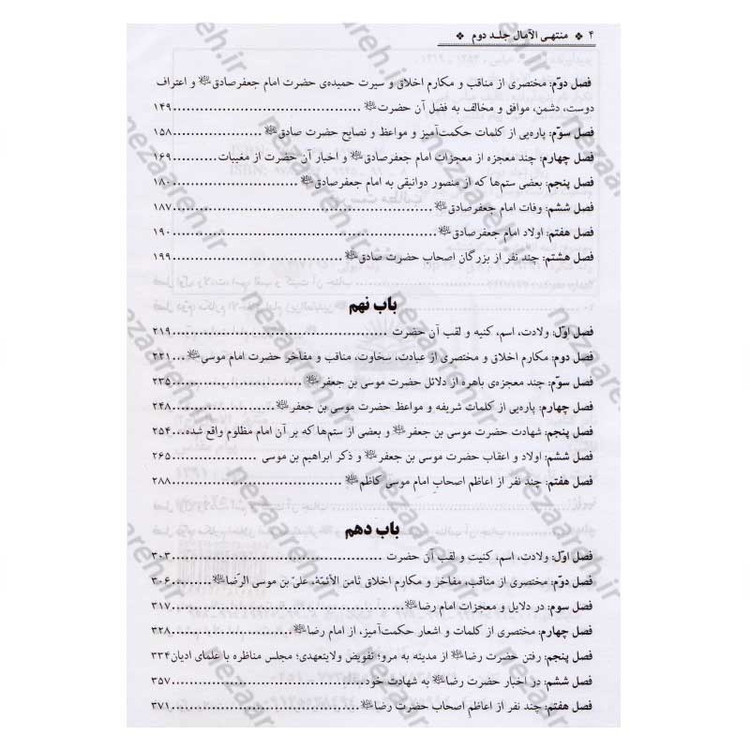 ۴ ❖ منتهی الآمال جلد دوم ❖
فصل دوّم: مختصری از مناقب و مکارم اخلاق و سیرت حمیده‌ی حضرت امام جعفرصادق و اعتراف
دوست، دشمن، موافق و مخالف به فضل آن حضرت ۱۴۹
فصل سوّم: پاره‌یی از کلمات حکمت‌آمیز و مواعظ و نصایح حضرت صادق ۱۵۸
فصل چهارم: چند معجزه از معجزات امام جعفرصادق و اخبار آن حضرت از مغیبات ۱۶۹
فصل پنجم: بعضی ستم‌ها که از منصور دوانیقی به امام جعفرصادق ۱۸۰
فصل ششم: وفات امام جعفرصادق ۱۸۷
فصل هفتم: اولاد امام جعفرصادق ۱۹۰
فصل هشتم: چند نفر از بزرگان اصحاب حضرت صادق ۱۹۹
باب نهم
فصل اوّل: ولادت، اسم، کنیه و لقب آن حضرت ۲۱۹
فصل دوم: مکارم اخلاق و مختصری از عبادت، سخاوت، مناقب و مفاخر حضرت امام موسی ۲۲۱
فصل سوّم: چند معجزه‌ی باهره از دلائل حضرت موسی بن جعفر ۲۳۵
فصل چهارم: پاره‌یی از کلمات شریفه و مواعظ حضرت موسی بن جعفر ۲۴۸
فصل پنجم: شهادت حضرت موسی بن جعفر و بعضی از ستم‌ها که بر آن امام مظلوم واقع شده ۲۵۴
فصل ششم: اولاد و اعقاب حضرت موسی بن جعفر و ذکر ابراهیم بن موسی ۲۶۵
فصل هفتم: چند نفر از اعاظم اصحاب امام موسی کاظم ۲۸۸
باب دهم
فصل اوّل: ولادت، اسم، کنیت و لقب آن حضرت ۳۰۳
فصل دوّم: مختصری از مناقب، مفاخر و مکارم اخلاق ثامن الأئمّة، علیّ بن موسی الرّضا ۳۰۶
فصل سوم: در دلایل و معجزات امام رضا ۳۱۷
فصل چهارم: مختصری از کلمات و اشعار حکمت‌آمیز، از امام رضا ۳۲۸
فصل پنجم: رفتن حضرت رضا از مدینه به مرو؛ تفویض ولایتعهدی؛ مجلس مناظره با علمای ادیان ۳۳۴
فصل ششم: در اخبار حضرت رضا به شهادت خود ۳۵۷
فصل هفتم: چند نفر از اعاظم اصحاب حضرت رضا ۳۷۱
nezaareh.ir